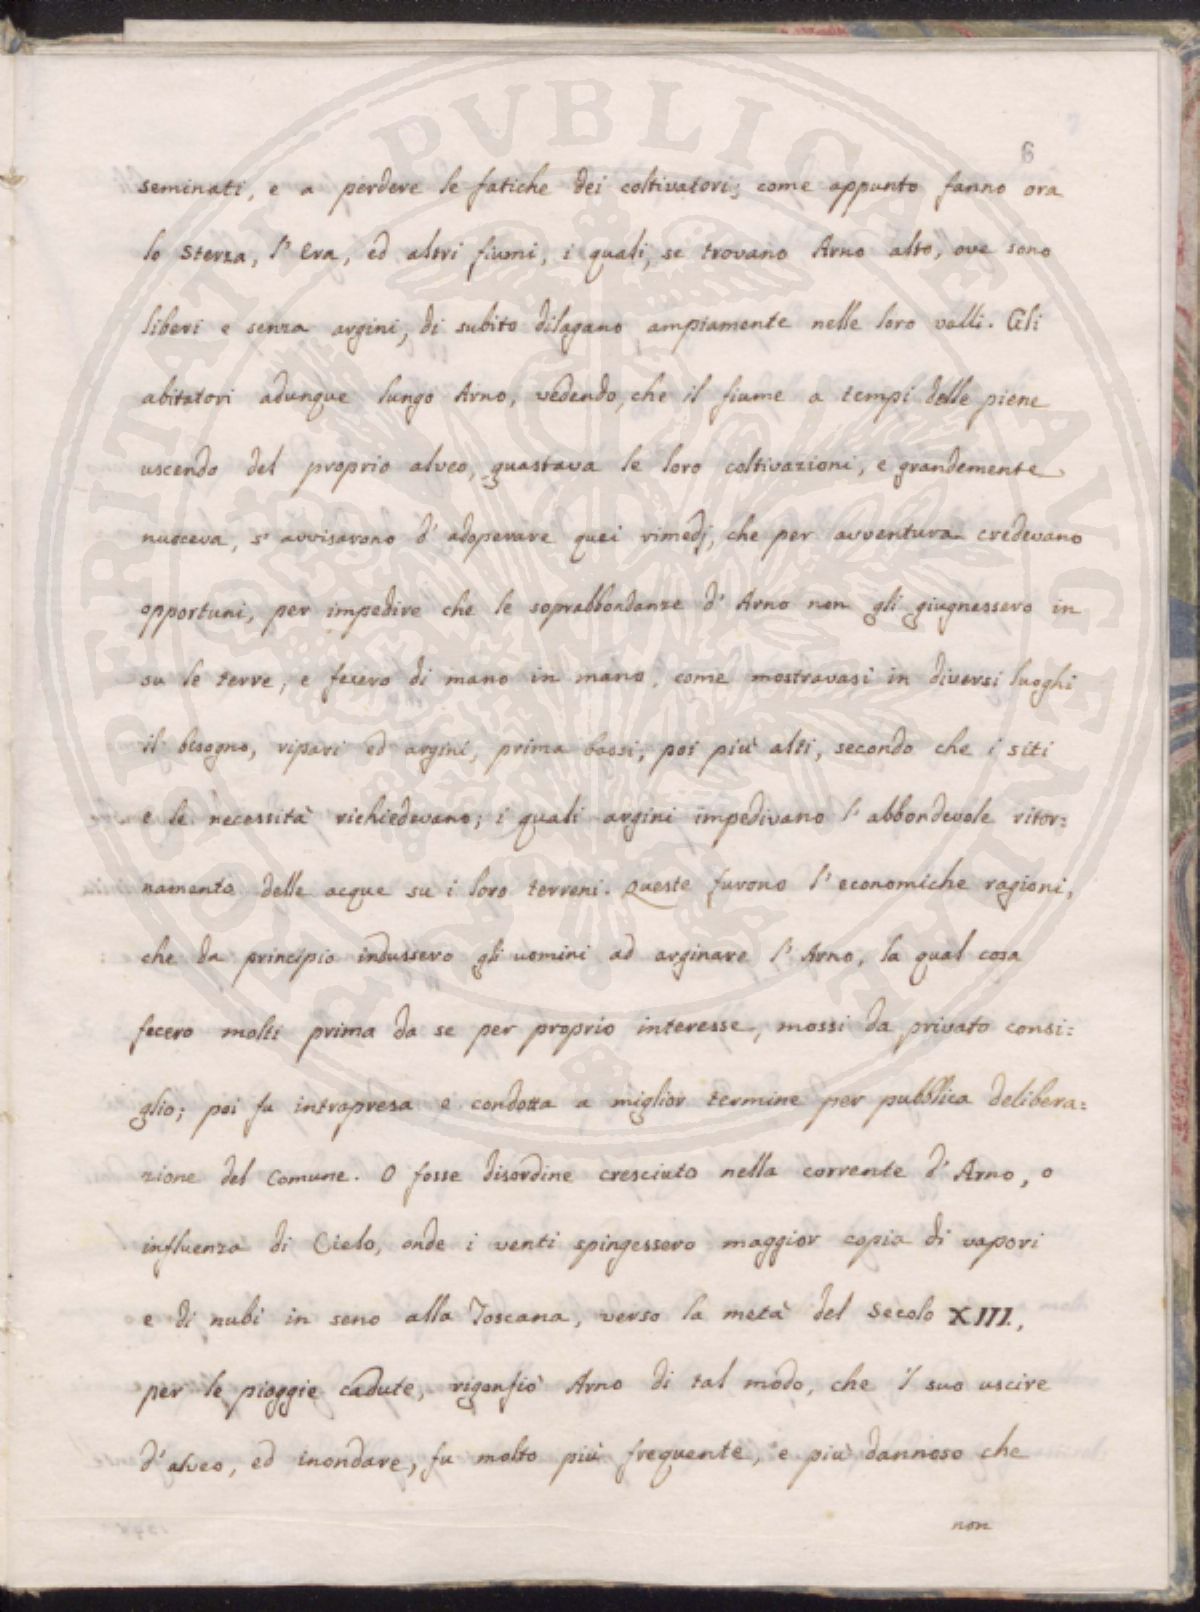 6
seminati, e a perdere le fatiche dei coltivatori; come appunto fanno ora
lo Sterza, l' Era, ed altri fiumi, i quali, se trovano Arno alto, ove sono
liberi e senza argini, di subito dilagano ampiamente nelle loro valli. Gli
abitatori adunque lungo Arno, vedendo, che il fiume a tempi delle piene
uscendo del proprio alveo, guastava le loro coltivazioni, e grandemente
nuoceva, s' avvisarono d' adoperare quei rimedj, che per avventura credevano
opportuni, per impedire che le soprabbondanze d' Arno non gli giugnessero in
su le terre, e fecero di mano in mano, come mostravasi in diversi luoghi
il bisogno, ripari ed argini, prima bassi, poi più alti, secondo che i siti
e le necessità richiedevano; i quali argini impedivano l' abbondevole ritor=
namento delle acque su i loro terreni. Queste furono l' economiche ragioni,
che da principio indussero gli uomini ad arginare l' Arno, la qual cosa
fecero molti prima da se per proprio interesse, mossi da privato consi=
glio; poi fu intrapresa e condotta a miglior termine per pubblica delibera=
zione del Comune. O fosse disordine cresciuto nella corrente d' Arno, o
influenza di Cielo, onde i venti spingessero maggior copia di vapori
e di nubi in seno alla Toscana, verso la metà del Secolo XIII.,
per le pioggie cadute, rigonfiò Arno di tal modo, che 'l suo uscire
d' alveo, ed inondare, fu molto più frequente, e più dannoso che
non
PUBLICAE AUGENDAE
PROSPERITATI